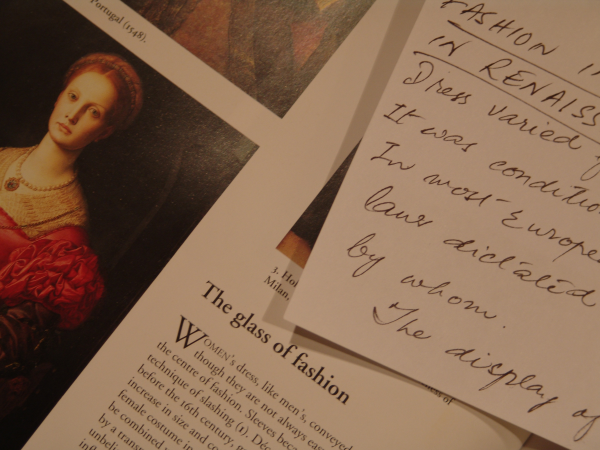 Portugal (1548).
3. Ho
Milan.
The glass of fashion
WOMEN's dress, like men's, conveyed
though they are not always eas
the centre of fashion. Sleeves beca
technique of slashing (1). Déc
before the 16th century, g
increase in size and co
female costume i
be combined
by a trans
unbeli
infl
of
FASHION I
IN RENAISS
Dress varied f
It was conditio
In most Europe
laws dictated
by whom.
The display of